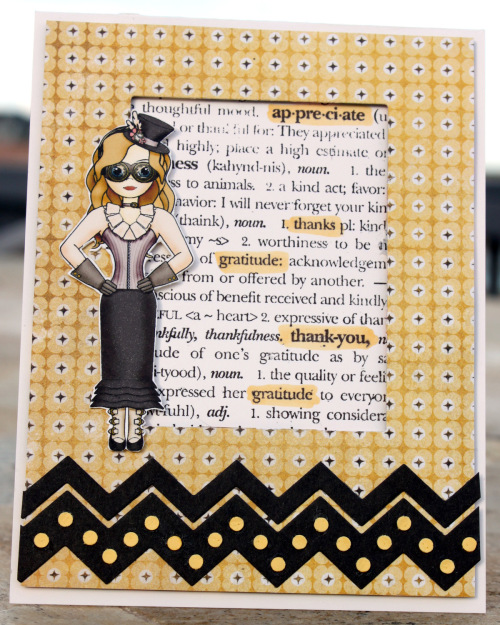 thoughtful mood. ap·pre·ci·ate (u
or thankful for: They appreciated
highly; place a high estimate or
ness (kahynd-nis), noun. 1. the
ss to animals. 2. a kind act; favor:
havior: I will never forget your kin
(thaink), noun. 1. thanks pl: kind
my ~s> 2. worthiness to be a
of gratitude: acknowledgem
from or offered by another. —
scious of benefit received and kindly
FUL <a ~ heart> 2. expressive of than
nkfully, thankfulness. thank-you, n
ude of one's gratitude as by sa
i-tyood), noun. 1. the quality or feeli
xpressed her gratitude to everyon
fuhl), adj. 1. showing considera